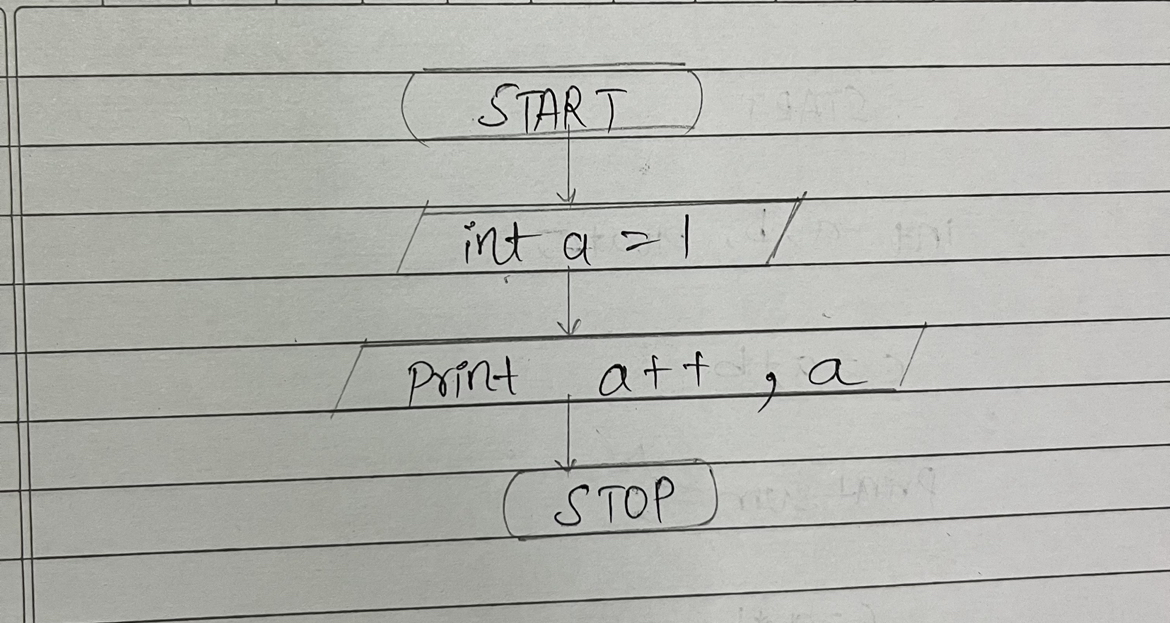 START
int a = 1
Print a++, a
STOP